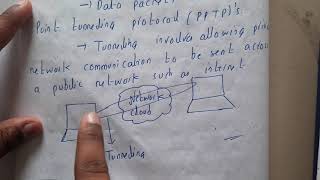 → Data packet
Point tunneling protocol (PPTP)'s
→ Tunneling involve allowing
network communication to be sent across
a public network such as internet
Network
cloud
Tunneling